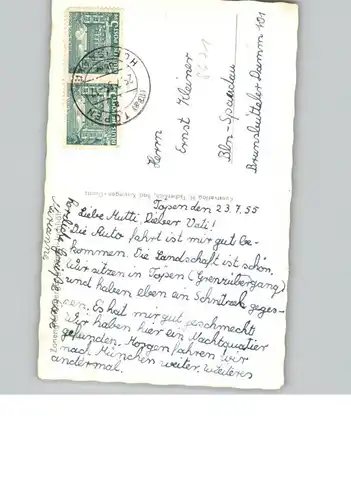 Töpen den 23.7.55
Liebe Mutti Lieber Vati!
Die Auto fahrt ist mir gut be-
kommen. Die Landschaft ist schön.
Wir sitzen in Töpen (Grenzübergang)
und haben eben ein Schnitzel geges-
sen. Es hat mir gut geschmeckt
Wir haben hier ein Nachtquatier
gefunden. Morgen fahren wir
nach München weiter, weiteres
andermal.
Herzliche Grüße eure
Herrn
Ernst Kleiner
Bln-Spandau
Brunsbütteler Damm 101
TÖPEN